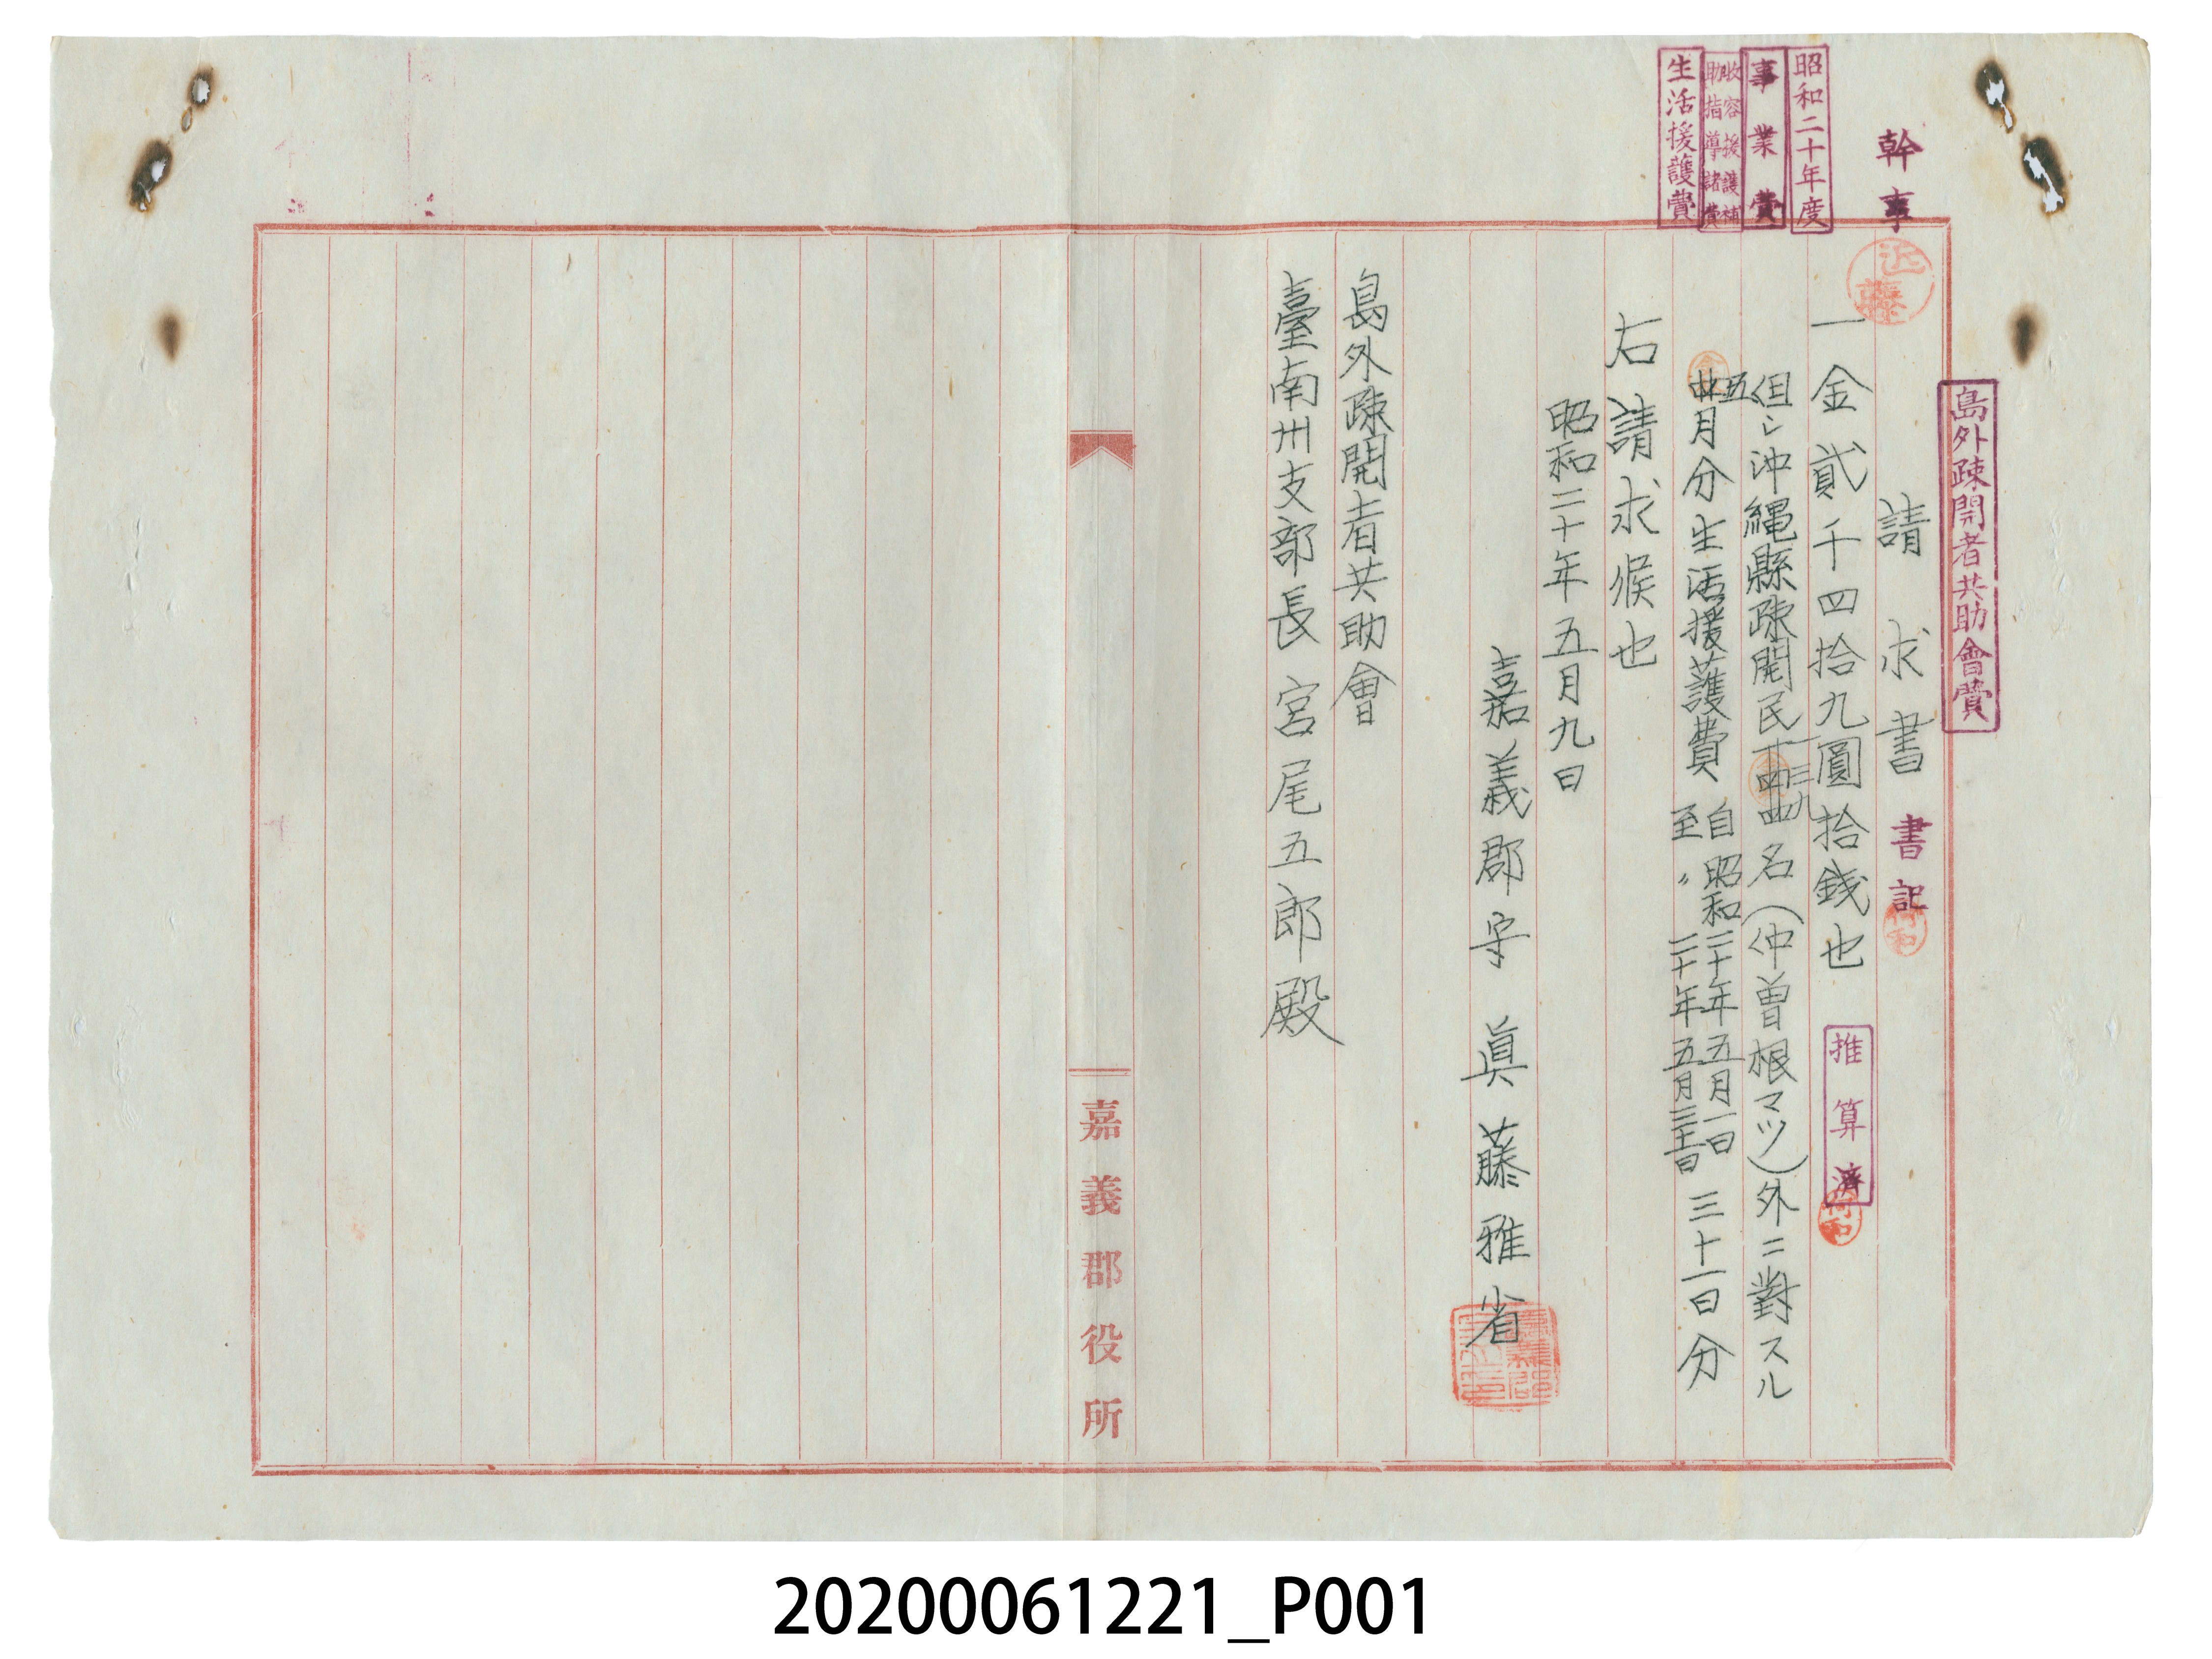 島外疎開者共助會費
幹事
近藤
昭和二十年度
事業費
收容援護補
助指導諸費
生活援護費
請求書
書記
一金貳千四拾九圓拾錢也
推算濟
但シ沖縄縣疎開民三九名(仲曽根マツ)外ニ對スル
五月分生活援護費
自昭和二十年五月一日
至〃二十年五月三十一日
三十一日分
右請求候也
昭和二十年五月九日
嘉義郡守 眞藤雅省
島外疎開者共助會
臺南州支部長 宮尾五郎殿
嘉義郡役所
20200061221_P001